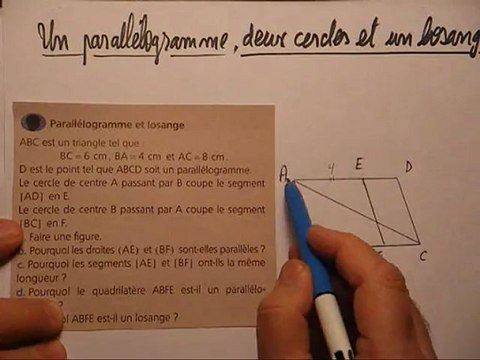 Un parallélogramme, deux cercles et un losang
Parallélogramme et losange
ABC est un triangle tel que :
BC = 6 cm, BA = 4 cm et AC = 8 cm.
D est le point tel que ABCD soit un parallélogramme.
Le cercle de centre A passant par B coupe le segment
[AD] en E.
Le cercle de centre B passant par A coupe le segment
[BC] en F.
Faire une figure.
b. Pourquoi les droites (AE) et (BF) sont-elles parallèles ?
c. Pourquoi les segments [AE] et [BF] ont-ils la même
longueur ?
d. Pourquoi le quadrilatère ABFE est-il un parallélo-
?
ABFE est-il un losange ?
A 4 E D
C